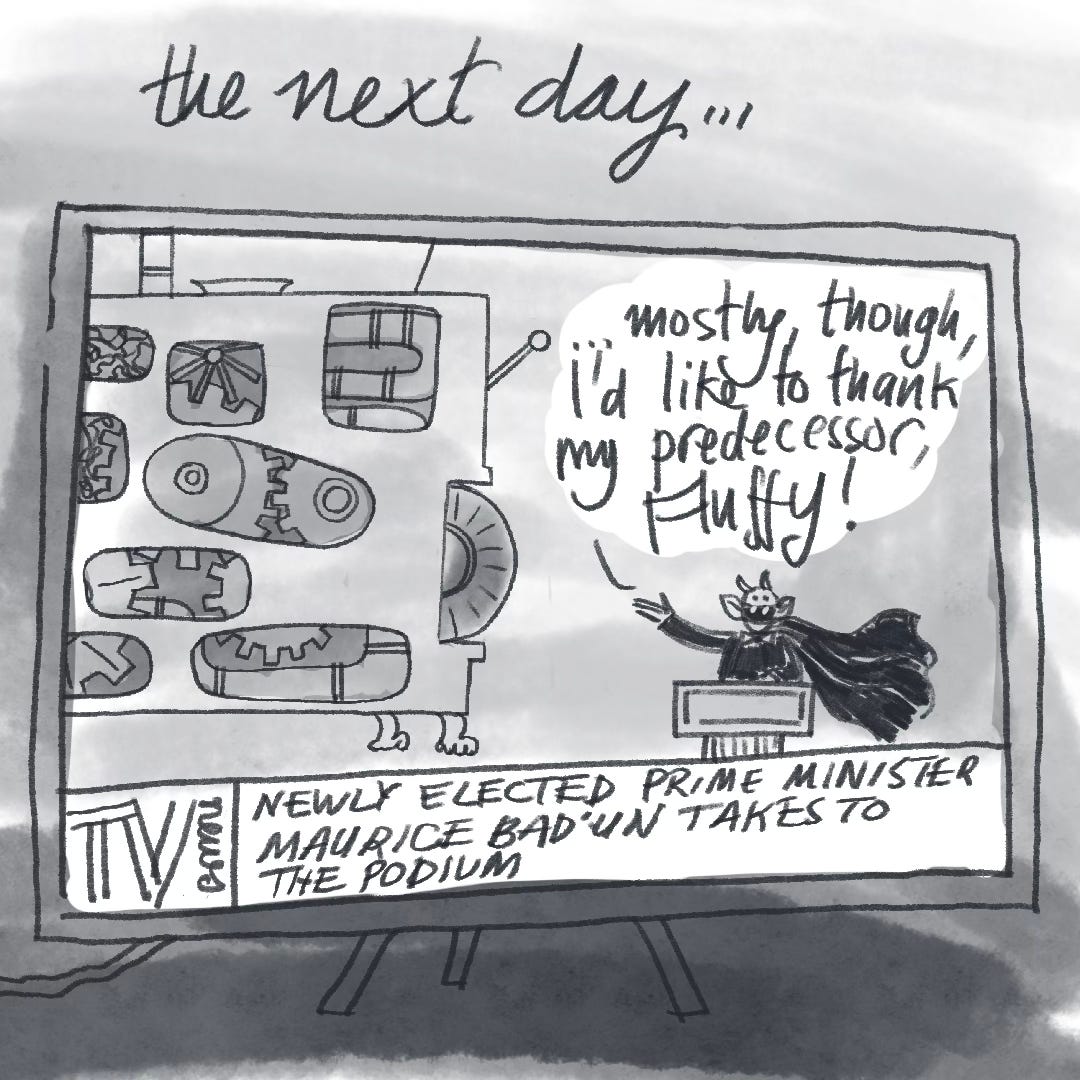 the next day...
... mostly, though,
i'd like to thank
my predecessor,
Fluffy!
TV news
NEWLY ELECTED PRIME MINISTER
MAURICE BAD'UN TAKES TO
THE PODIUM